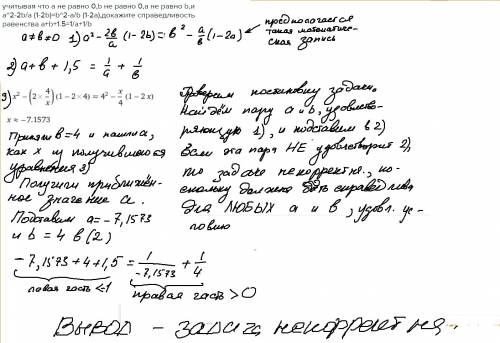 учитывая что a не равно 0,b не равно 0,а не равно b,и
a^2-2b/a (1-2b)=b^2-a/b (1-2a),докажите справедливость
равенства a+b+1.5=1/a+1/b
предполагается такая математическая запись
a≠b≠0 1) a² - 2b/a (1-2b) = b² - a/b (1-2a)
2) a+b+1,5 = 1/a + 1/b
3) x² - (2 × 4/x) (1 - 2 × 4) = 4² - x/4 (1 - 2 x)
x ≈ -7.1573
Приняли b=4 и нашли a,
как x из получившегося
уравнения 3)
Получили приближён-
ное значение a.
Подставим a = -7,1573
и b = 4 в (2)
-7,1573 + 4 + 1,5 = 1/-7,1573 + 1/4
левая часть < -1
правая часть > 0
Проверим постановку задачи.
Найдём пару a и b, удовлетв-
ряющую 1), и подставим в 2)
Если эта пара НЕ удовлетворит 2),
то задача некорректна, по-
скольку должна быть справедлива
для ЛЮБЫХ a и b, удовл. ус-
ловию
Вывод - задача некорректна.